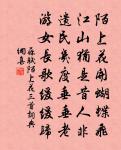 陌上花開蝴蝶飛
江山猶是昔人非
遺民幾度垂垂老
游女長歌緩緩歸
蘇軾陌上花三首詞典
網喜